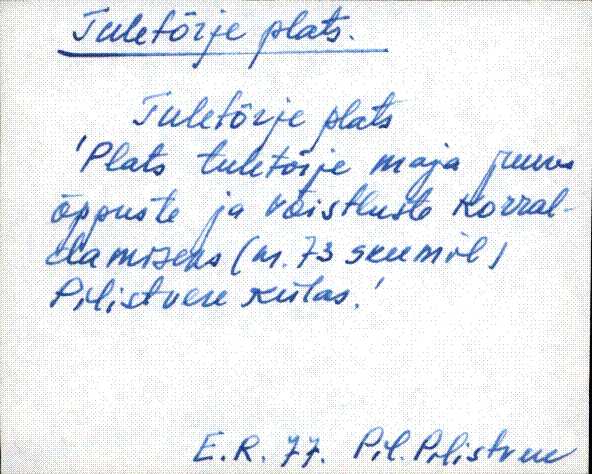 Tuletõrje plats.
Tuletõrje plats
'Plats tuletõrje maja juures
õppuste ja võistluste korral-
damiseks (nr. 73 skeemil)
Pilistvere külas.'
E.R. 77. Pil. Pilistvere